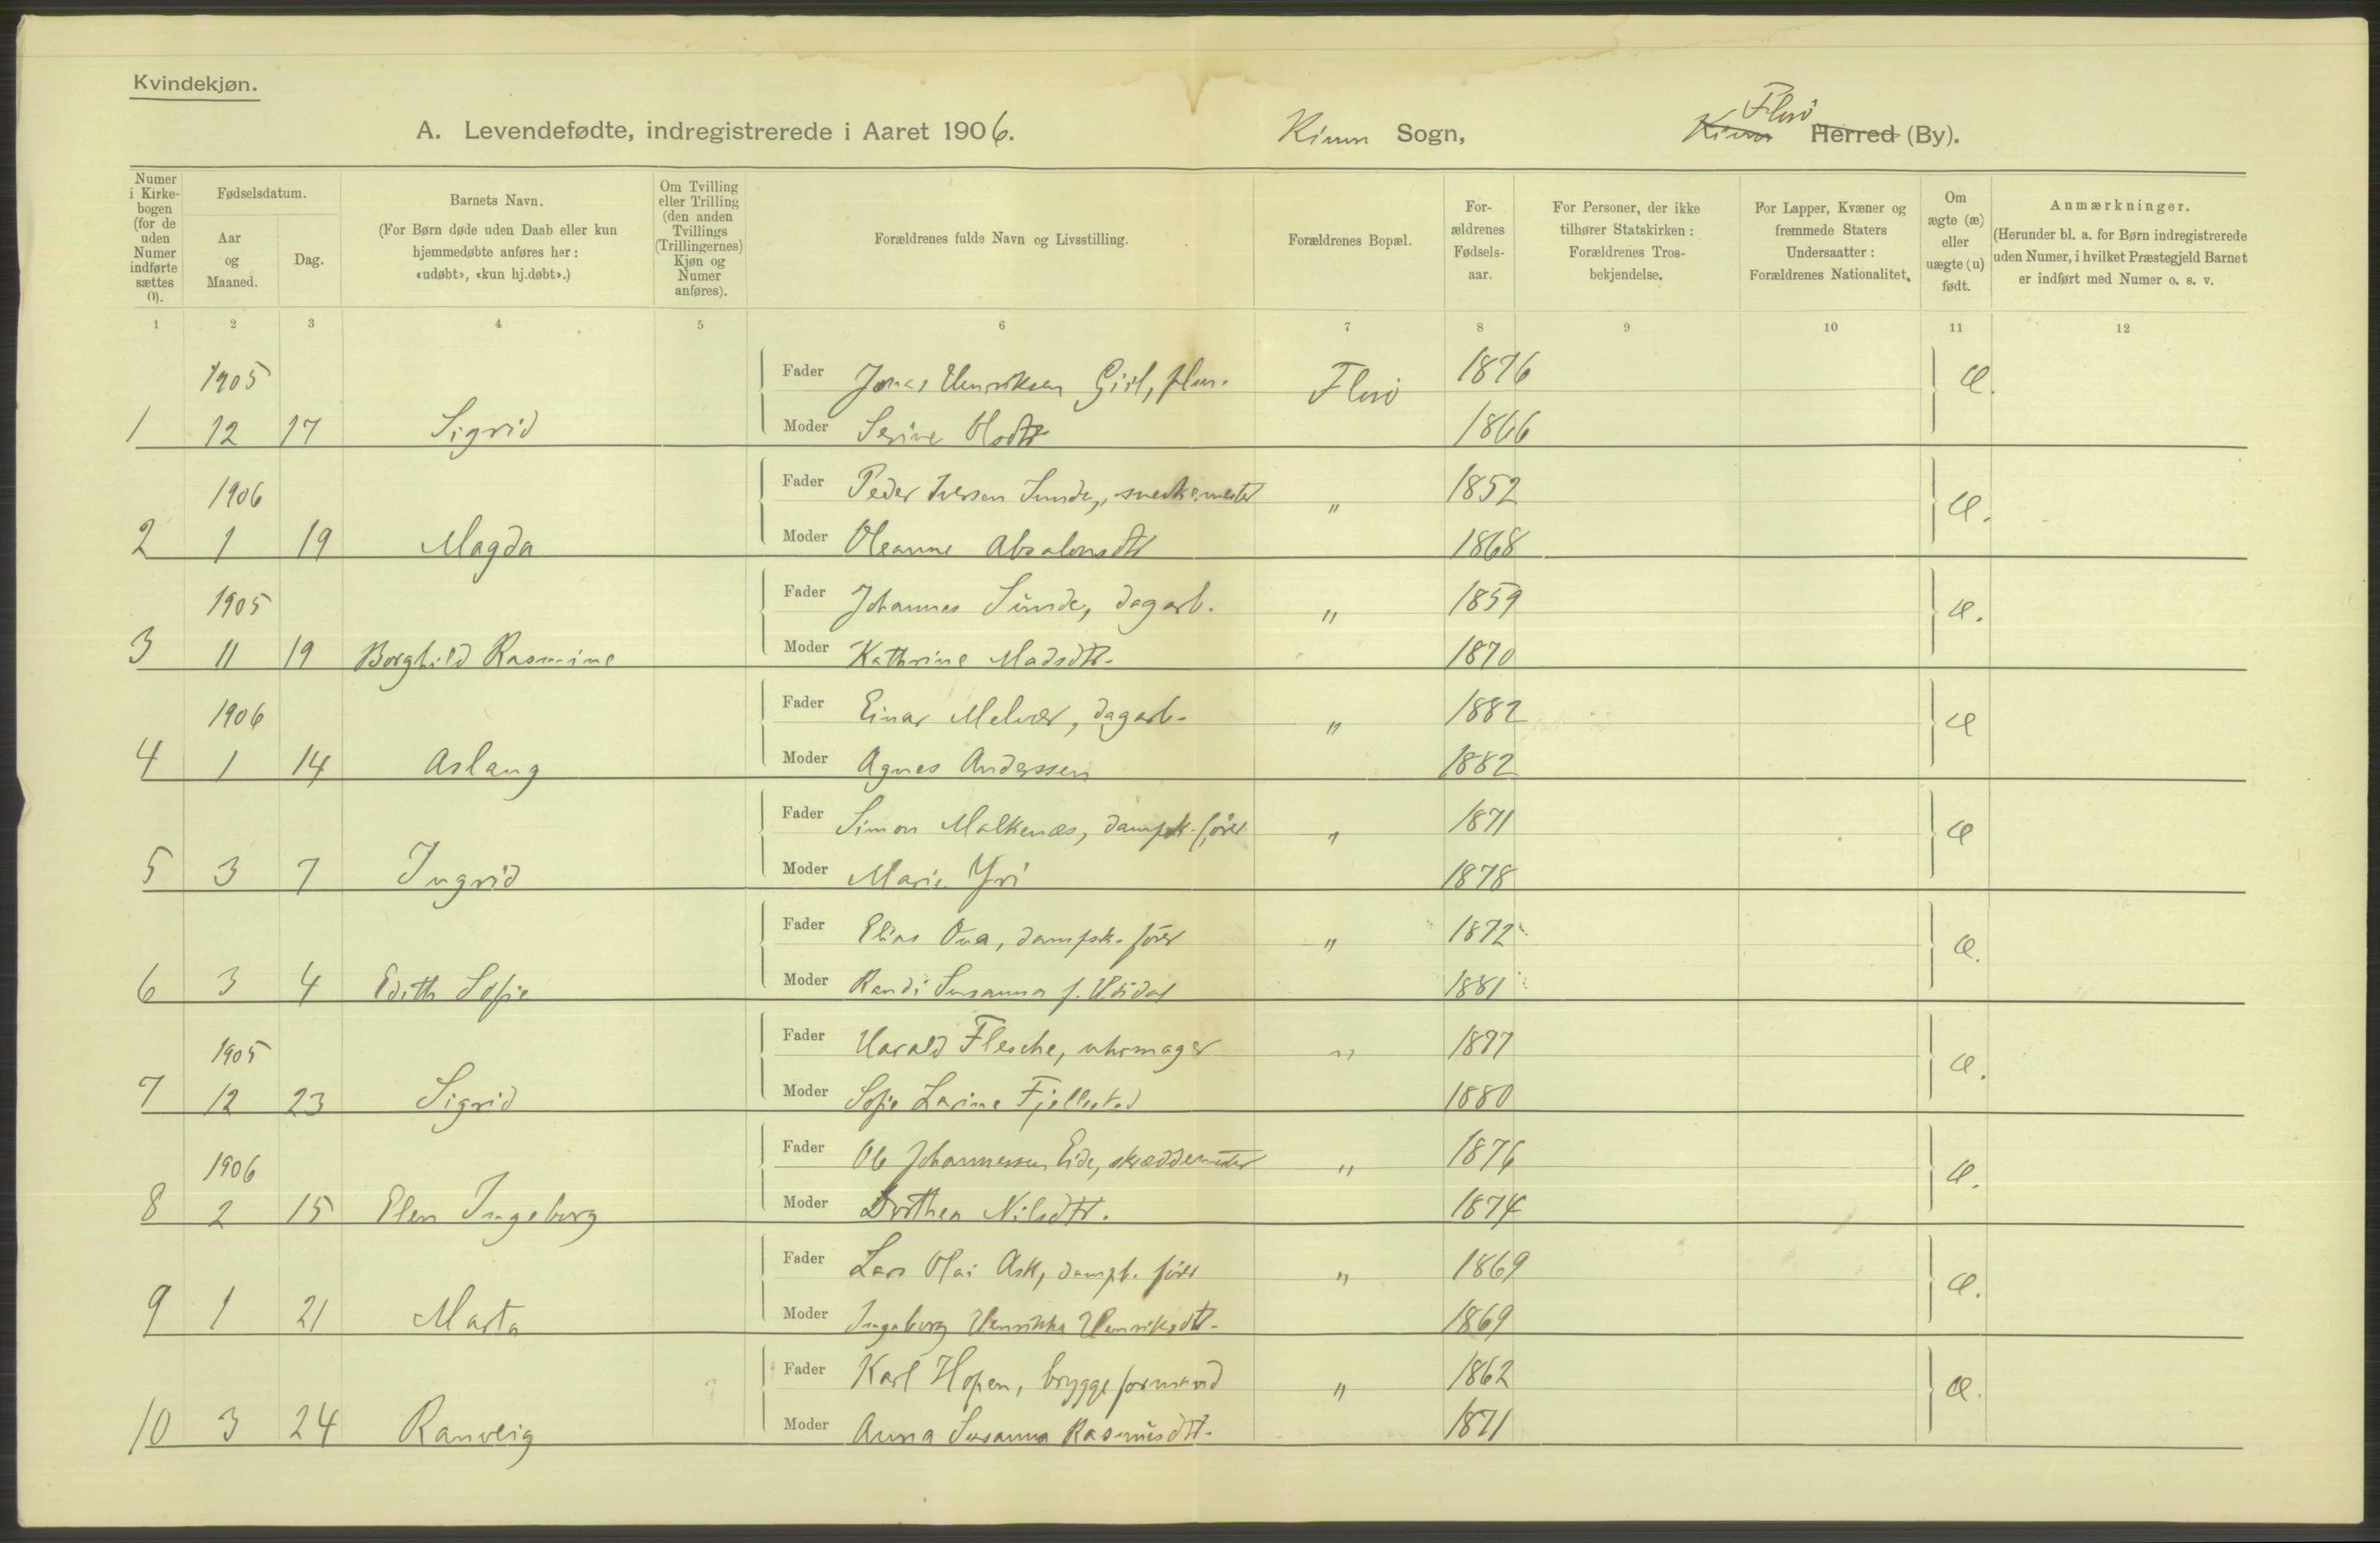 Kvindekjøn.
A. Levendefødte, indregistrerede i Aaret 1906. Kinn Sogn, Kinn Florö Herred (By).
Numer i Kirkebogen (for de uden Numer indførte sættes 0).
Fødselsdatum.
Aar og Maaned.
Dag.
Barnets Navn.
(For Børn døde uden Daab eller kun hjemmedøbte anføres her: «udøbt», «kun hj.døbt».)
Om Tvilling eller Trilling (den anden Tvillings (Trillingernes) Kjøn og Numer anføres).
Forældrenes fulde Navn og Livsstilling.
Forældrenes Bopæl.
For-ældrenes Fødsels-aar.
For Personer, der ikke tilhører Statskirken: Forældrenes Tros-bekjendelse.
For Lapper, Kvæner og fremmede Staters Undersaatter: Forældrenes Nationalitet.
Om ægte (æ) eller uægte (u) født.
Anmærkninger.
(Herunder bl. a. for Børn indregistrerede uden Numer, i hvilket Præstegjeld Barnet er indført med Numer o. s. v.
1 2 3 4 5 6 7 8 9 10 11 12
1905 Fader Jonas Henriksen Florö 1876 æ.
1 12 17 Sigrid Moder Serine 1866
1906 Fader Peder Iversen Sunde, " 1852 æ.
2 1 19 Magda Moder Oleanne Absalonsdtr 1868
1905 Fader Johannes Sunde, dagarb. " 1859 æ.
3 11 19 Borghild Rasmine Moder Kathrine Madsdtr. 1870
1906 Fader Einar Melvær, dagarb. " 1882 æ
4 1 14 Aslaug Moder Agnes Anderssen 1882
Fader Simon Malkenæs, dampsk.förer " 1871 æ
5 3 7 Ingrid Moder Marie Yri 1878
Fader Elias dampsk. förer " 1872 æ.
6 3 4 Edith Sofie Moder Randi Susanna f. 1881
1905 Fader Harald Flesche, uhrmager " 1877 æ.
7 12 23 Sigrid Moder Sofie Larine Fjellestad 1880
1906 Fader Ole Johannessen Eide, skræddermester " 1876 æ.
8 2 15 Elen Ingeborg Moder Dorthea Nilsdtr. 1874
Fader Lars Olai Ask, dampsk. förer " 1869 æ.
9 1 21 Marta Moder Ingeborg Henrikka Henriksdtr. 1869
Fader Karl Hopen, bryggeformand " 1862 æ.
10 3 24 Ranveig Moder Anna Susanna Rasmusdtr. 1871